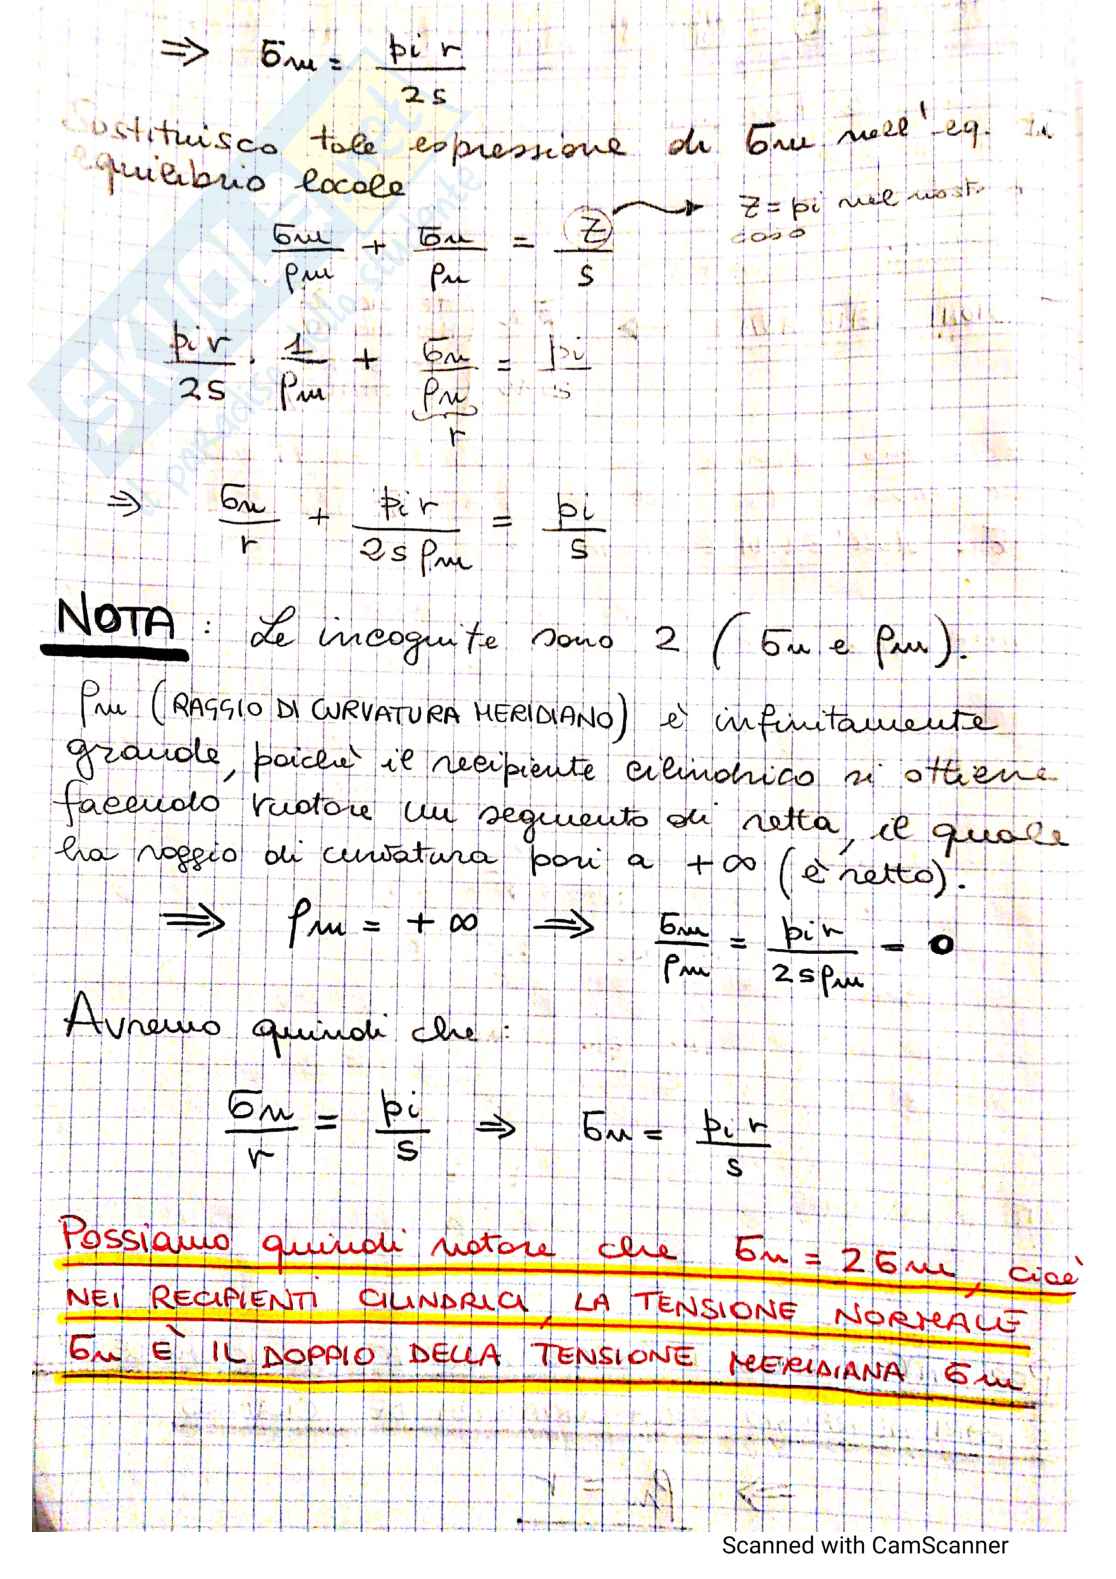 ⇒ σm = pi r / 2s
Sostituisco tale espressione di σm nell'eq. di
equilibrio locale
σm/ρm + σn/ρn = Z/s → Z = pi nel nostro
caso
pi r/2s · 1/ρm + σn/ρn = pi/s
r
⇒ σn/r + pi r/2s ρm = pi/s
NOTA : Le incognite sono 2 ( σn e ρm).
ρm (RAGGIO DI CURVATURA MERIDIANO) è infinitamente
grande, poichè il recipiente cilindrico si ottiene
facendo ruotare un segmento di retta, il quale
ha raggio di curvatura pari a +∞ (è retto).
⇒ ρm = +∞ ⇒ σm/ρm = pi r/2s ρm = 0
Avremo quindi che :
σn/r = pi/s ⇒ σn = pi r/s
Possiamo quindi notare che σn = 2σm, cioè
NEI RECIPIENTI CILINDRICI, LA TENSIONE NORMALE
σn È IL DOPPIO DELLA TENSIONE MERIDIANA σm
SKUOLA.net
il paradiso dello studente
Scanned with CamScanner